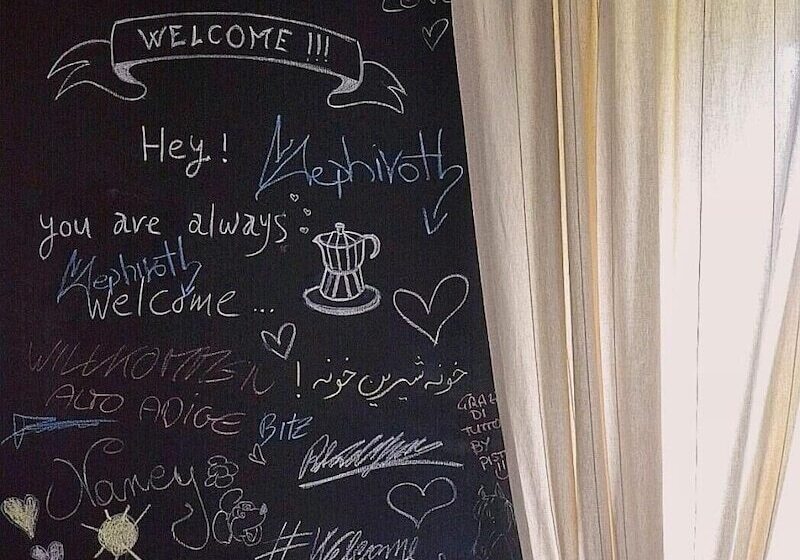 WELCOME !!!
Hey!
Nephiroth
you are always
Nephiroth
welcome...
WILLKOMMEN
خونه شیرین خونه !
ALTO ADIGE
BITZ
DI
TUTTO
BY
Nancy
#Welcome